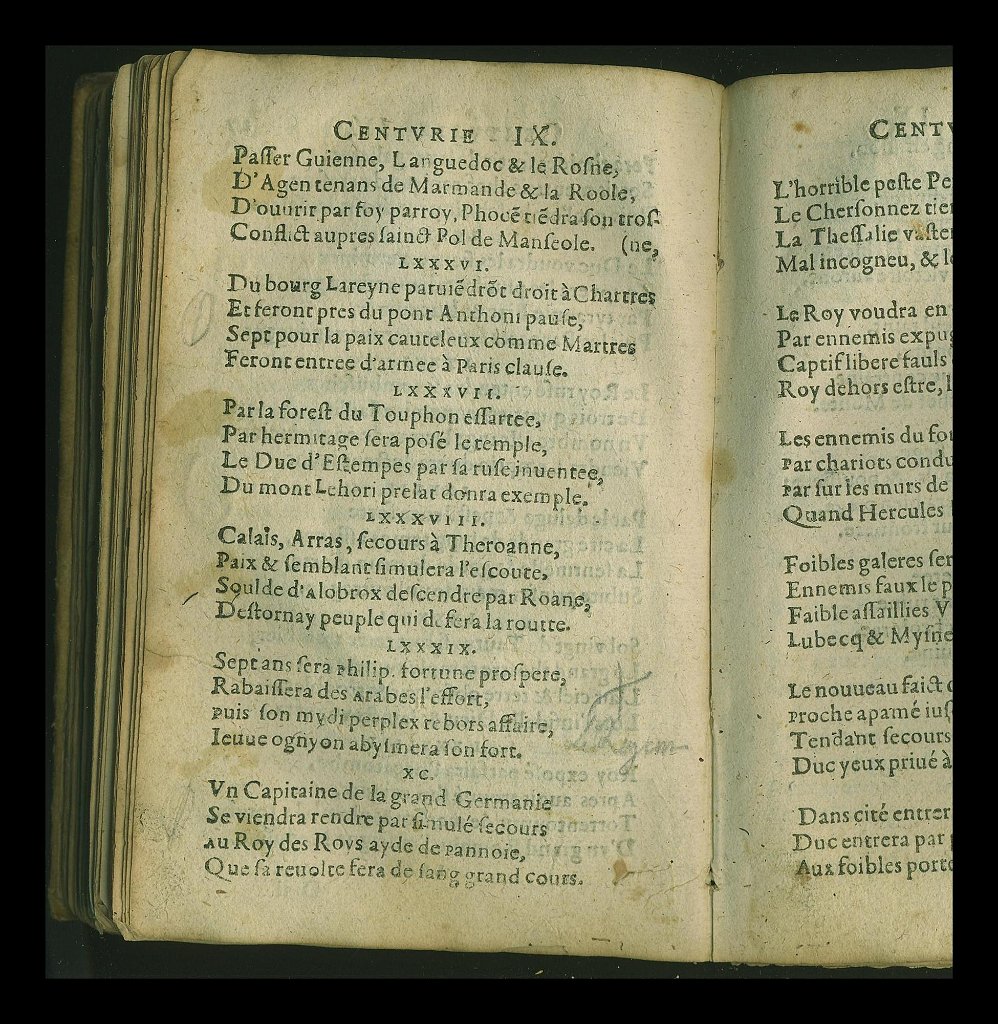 CENTVRIE IX.
Paſſer Guienne, Languedoc & le Roſne,
D'Agen tenans de Marmande & la Roole,
D'ouurir par foy parroy, Phocē tiēdra ſon troſ-
Conflict aupres ſainct Pol de Manſeole. (ne,
LXXXVI.
Du bourg Lareyne paruiēdrōt droit à Chartres
Et feront pres du pont Anthoni pauſe,
Sept pour la paix cauteleux comme Martres
Feront entree d'armee à Paris clauſe.
LXXXVII.
Par la foreſt du Touphon eſſartee,
Par hermitage ſera poſé le temple,
Le Duc d'Eſtempes par ſa ruſe inuentee,
Du mont Lehori prelat donra exemple.
LXXXVIII.
Calais, Arras, ſecours à Theroanne,
Paix & ſemblant ſimulera l'eſcoute,
Soulde d'Alobrox deſcendre par Roane,
Deſtornay peuple qui defera la routte.
LXXXIX.
Sept ans ſera Philip. fortune proſpere,
Rabaiſſera des Arabes l'effort,
Puis ſon mydi perplex rebors affaire,
Ieuue ognyon abyſmera ſon fort.
XC.
Vn Capitaine de la grand Germanie
Se viendra rendre par ſimulé ſecours
Au Roy des Roys ayde de Pannoie,
Que ſa reuolte fera de ſang grand cours.
CENTV
L'horrible peſte Pe
Le Cherſonnez tie
La Theſſalie vaſte
Mal incogneu, & l
Le Roy voudra en
Par ennemis expu
Captif libere fauls
Roy dehors eſtre, l
Les ennemis du fo
Par chariots condu
Par ſur les murs de
Quand Hercules
Foibles galeres ſer
Ennemis faux le p
Faible aſſaillies V
Lubecq & Myſne
Le nouueau faict
Proche apamé iuſ
Tendant ſecours
Duc yeux priué à
Dans cité entrer
Duc entrera par
Aux foibles porte